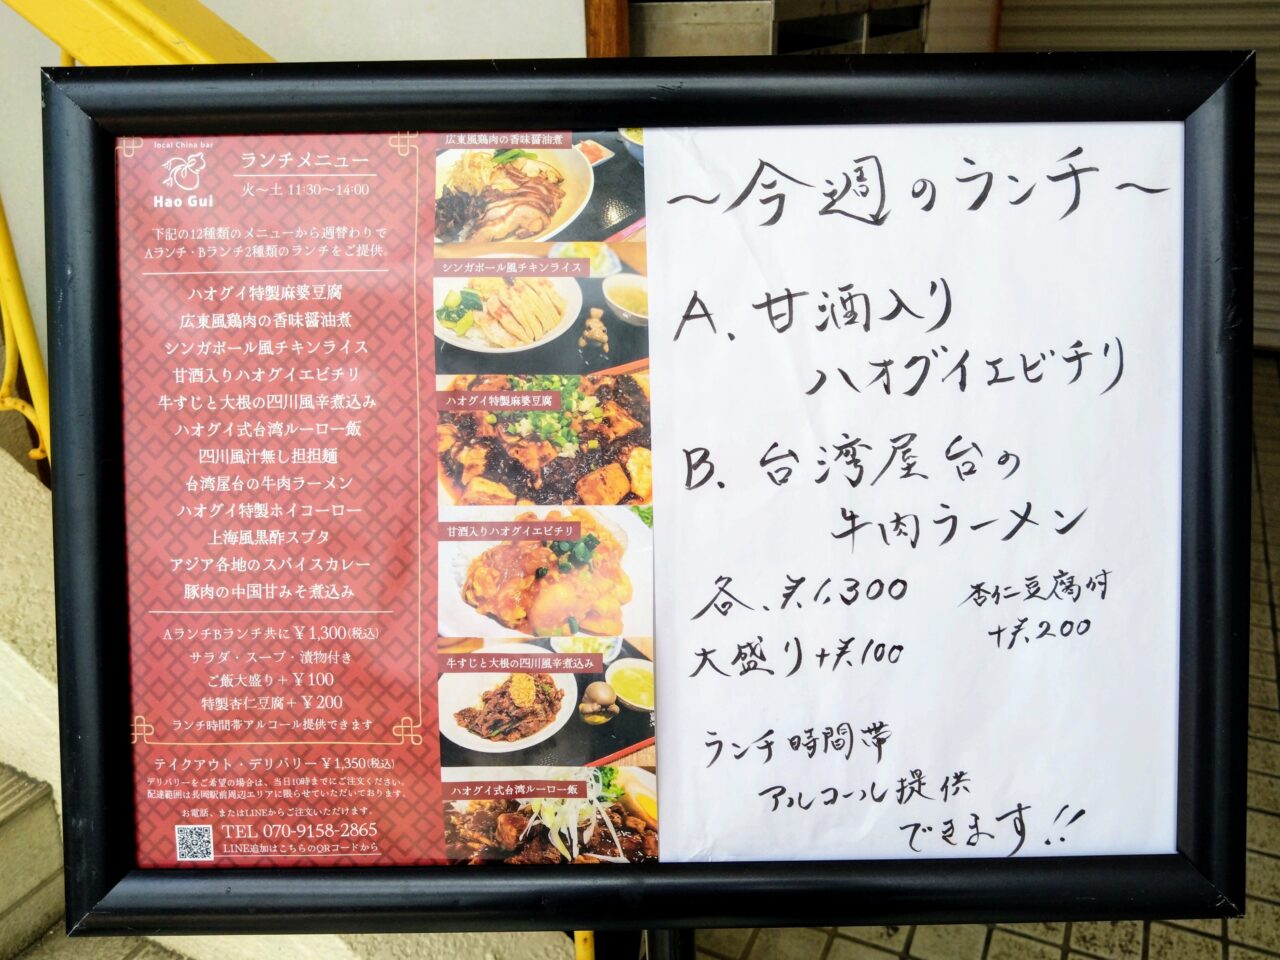 local China bar
Hao Gui
ランチメニュー
火～土 11:30～14:00
下記の12種類のメニューから週替わりで
Aランチ・Bランチ2種類のランチをご提供。
ハオグイ特製麻婆豆腐
広東風鶏肉の香味醤油煮
シンガポール風チキンライス
甘酒入りハオグイエビチリ
牛すじと大根の四川風辛煮込み
ハオグイ式台湾ルーロー飯
四川風汁無し担担麺
台湾屋台の牛肉ラーメン
ハオグイ特製ホイコーロー
上海風黒酢スブタ
アジア各地のスパイスカレー
豚肉の中国甘みそ煮込み
AランチBランチ共に￥1,300(税込)
サラダ・スープ・漬物付き
ご飯大盛り＋￥100
特製杏仁豆腐＋￥200
ランチ時間帯アルコール提供できます
テイクアウト・デリバリー￥1,350(税込)
デリバリーをご希望の場合は、当日10時までにご注文ください。
配達範囲は長岡駅前周辺エリアに限らせていただいております。
お電話、またはLINEからご注文いただけます。
TEL 070-9158-2865
LINE追加はこちらのQRコードから
広東風鶏肉の香味醤油煮
シンガポール風チキンライス
ハオグイ特製麻婆豆腐
甘酒入りハオグイエビチリ
牛すじと大根の四川風辛煮込み
ハオグイ式台湾ルーロー飯
～今週のランチ～
A. 甘酒入り
ハオグイエビチリ
B. 台湾屋台の
牛肉ラーメン
各、￥1,300
大盛り＋￥100
杏仁豆腐付
＋￥200
ランチ時間帯
アルコール提供
できます!!